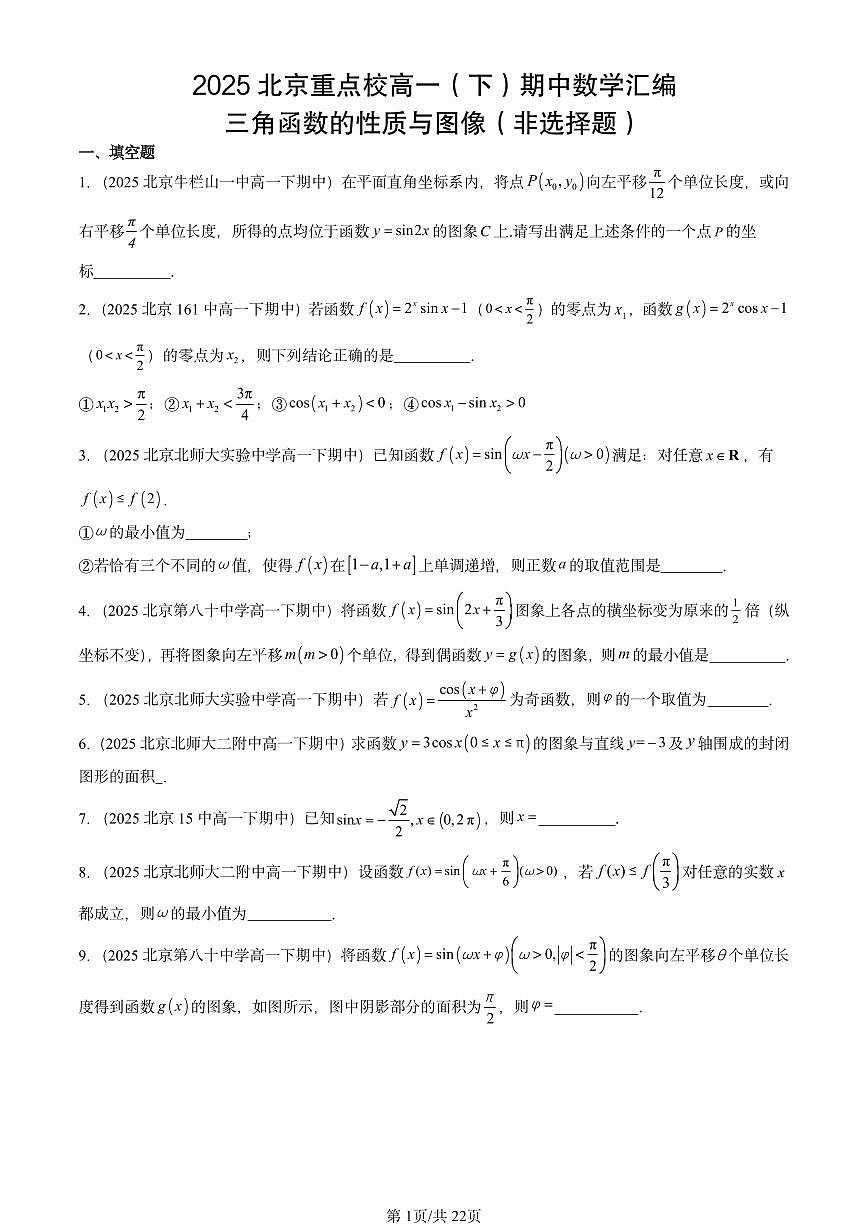 2025 北京重点校高一（下）期中数学汇编
三角函数的性质与图像（非选择题）
一、填空题
1.（2025 北京牛栏山一中高一下期中）在平面直角坐标系内，将点 P(x₀, y₀) 向左平移 π/12 个单位长度，或向
右平移 π/4 个单位长度，所得的点均位于函数 y = sin2x 的图象 C 上.请写出满足上述条件的一个点 P 的坐
标__________.
2.（2025 北京 161 中高一下期中）若函数 f(x) = 2ˣ sin x − 1（0 < x < π/2）的零点为 x₁，函数 g(x) = 2ˣ cos x − 1
（0 < x < π/2）的零点为 x₂，则下列结论正确的是__________.
①x₁x₂ > π/2；②x₁ + x₂ < 3π/4；③cos(x₁ + x₂) < 0；④cos x₁ − sin x₂ > 0
3.（2025 北京北师大实验中学高一下期中）已知函数 f(x) = sin(ωx − π/2)(ω > 0) 满足：对任意 x ∈ R，有
f(x) ≤ f(2).
①ω 的最小值为________；
②若恰有三个不同的 ω 值，使得 f(x) 在 [1−a,1+a] 上单调递增，则正数 a 的取值范围是________.
4.（2025 北京第八十中学高一下期中）将函数 f(x) = sin(2x + π/3) 图象上各点的横坐标变为原来的 1/2 倍（纵
坐标不变），再将图象向左平移 m(m > 0) 个单位，得到偶函数 y = g(x) 的图象，则 m 的最小值是__________.
5.（2025 北京北师大实验中学高一下期中）若 f(x) = cos(x + φ)/x² 为奇函数，则 φ 的一个取值为________.
6.（2025 北京北师大二附中高一下期中）求函数 y = 3cos x(0 ≤ x ≤ π) 的图象与直线 y= − 3 及 y 轴围成的封闭
图形的面积_.
7.（2025 北京 15 中高一下期中）已知 sinx = − √2/2, x ∈ (0, 2π)，则 x = __________.
8.（2025 北京北师大二附中高一下期中）设函数 f(x) = sin(ωx + π/6)(ω > 0)，若 f(x) ≤ f(π/3) 对任意的实数 x
都成立，则 ω 的最小值为___________.
9.（2025 北京第八十中学高一下期中）将函数 f(x) = sin(ωx + φ)(ω > 0, |φ| < π/2) 的图象向左平移 θ 个单位长
度得到函数 g(x) 的图象，如图所示，图中阴影部分的面积为 π/2，则 φ = ___________.
第 1页/共 22页